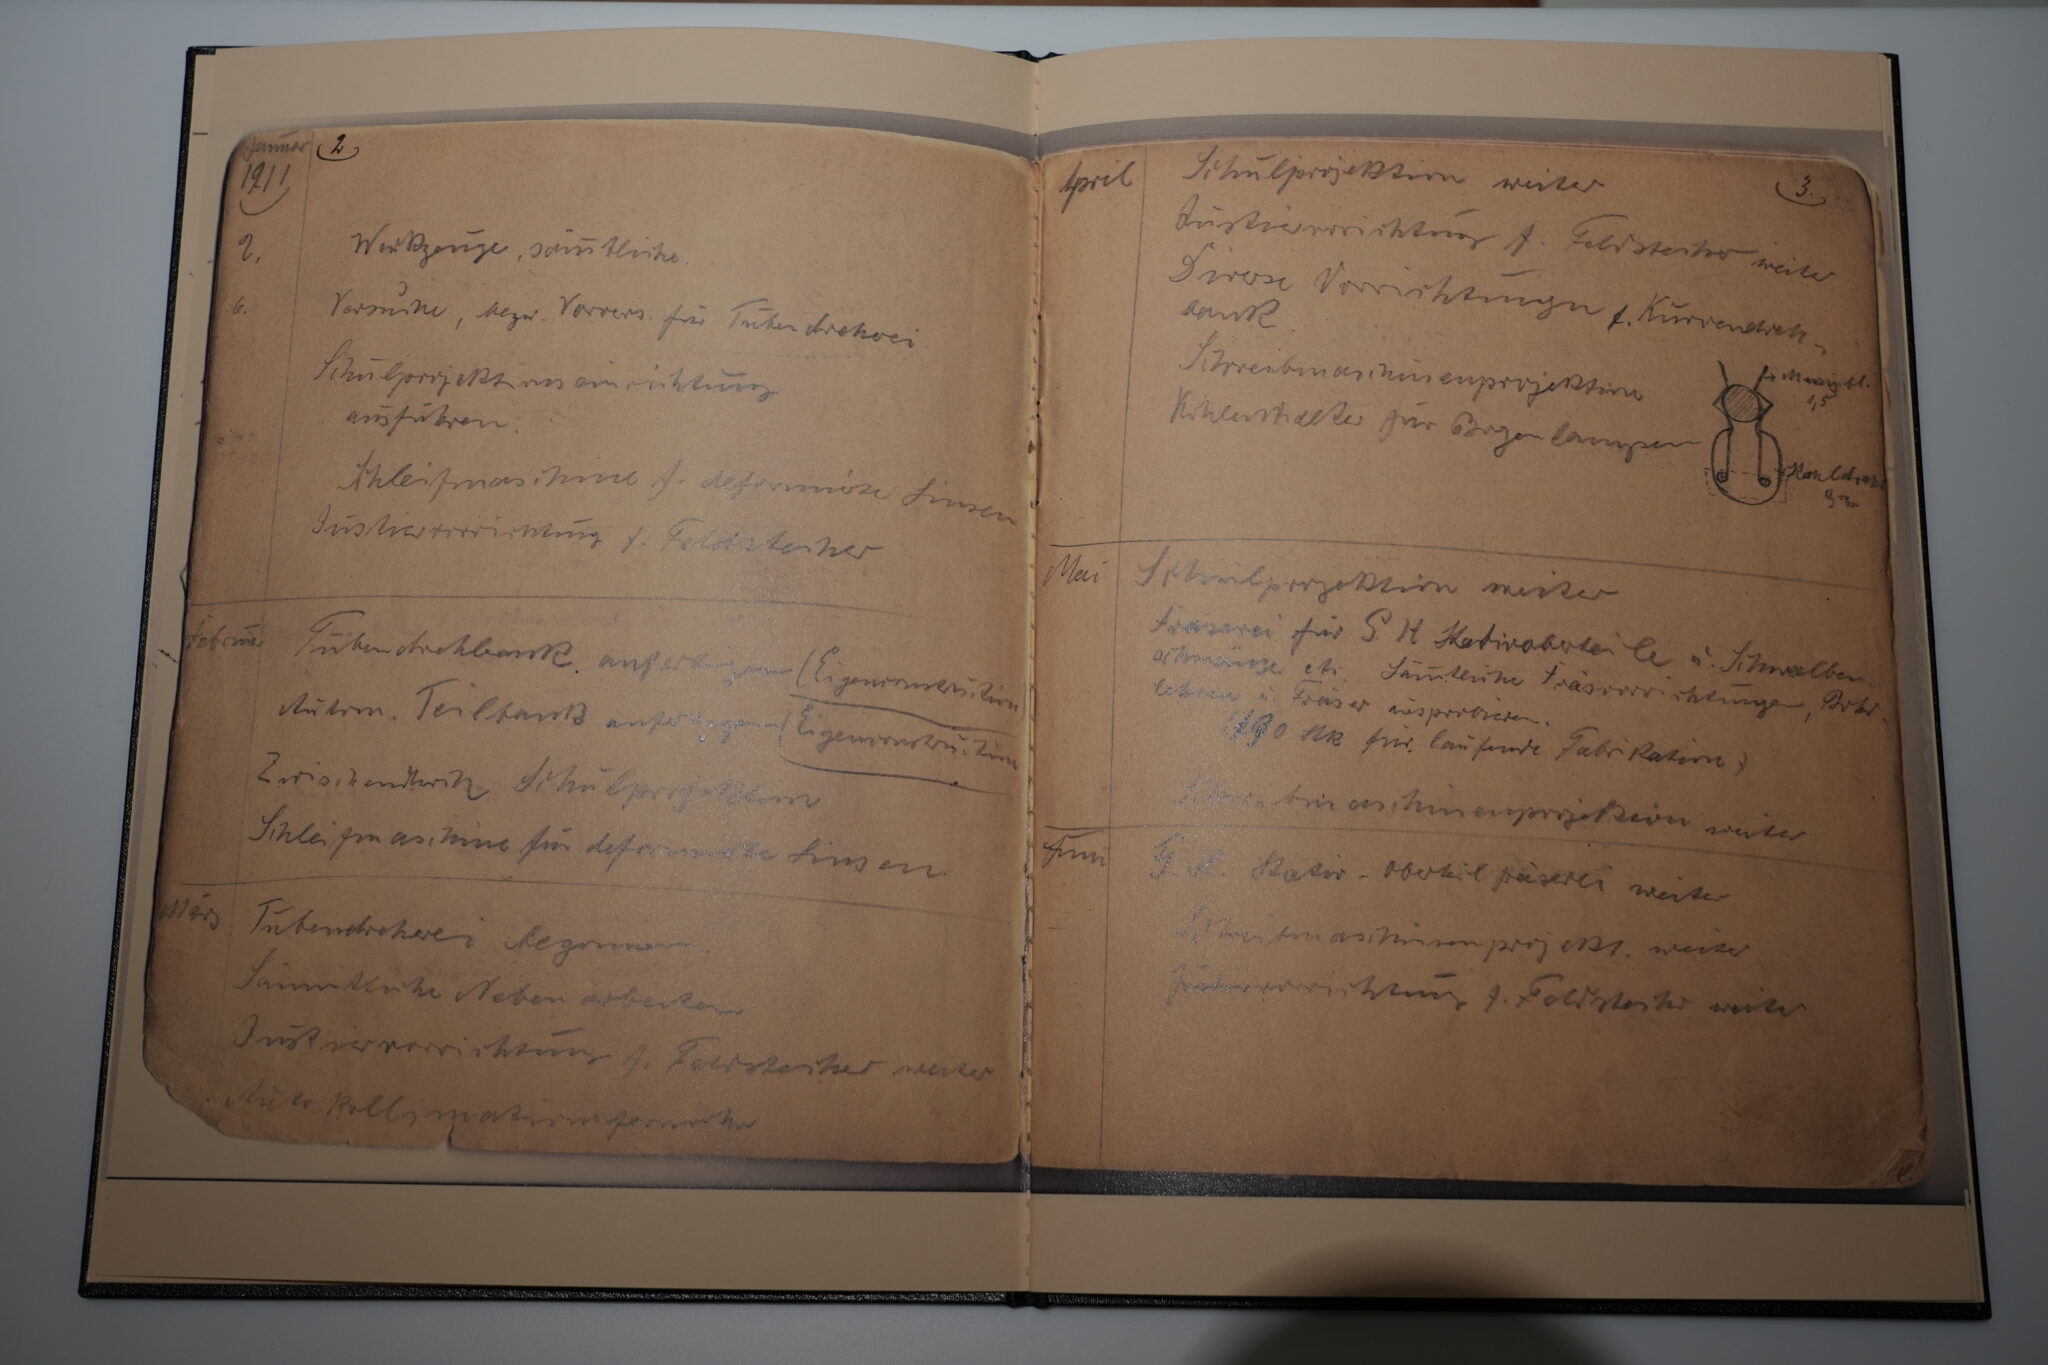 Januar
1911
2
2.
Werkzeuge, sämtliche.
6.
Versuche, bezw. Vorvers. für Tubendreherei
Schulprojektionseinrichtung
ausführen.
Schleifmaschine f. deformirte Linsen
Justiervorrichtung f. Feldstecher
Februar
Tubendrehbank anfertigen (Eigenconstruction
Autom. Teilbank anfertigen (Eigenconstruction
Schulprojektion
Schleifmaschine für deformirte Linsen
März
Tubendreherei begonnen.
Sämmtliche Nebenarbeiten
Justiervorrichtung f. Feldstecher weiter
Autokollimationsfernrohr
3.
April
Schulprojektion weiter
Justiervorrichtung f. Feldstecher weiter
Diverse Vorrichtungen f. Kurvendreh-
bank
Schreibmaschinenprojektion
Kohlenhalter für Bogenlampen
1,5
Mai
Schulprojektion weiter
Fräserei für G H Stativoberteile u. Schwalben-
schwänze etc. Sämtliche Fräsvorrichtungen, Bohr-
lehren u. Fräser ausprobieren.
Stk für laufende Fabrikation)
Schreibmaschinenprojektion weiter
Juni
G. H. Stativ-oberteilfräserei weiter
Schreibmaschinenprojekt. weiter
Justiervorrichtung f. Feldstecher weiter